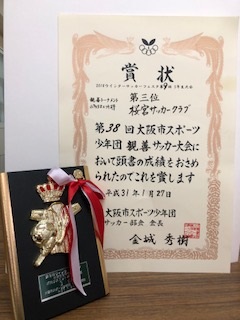 賞状
第三位
桜宮サッカークラブ
第38回大阪市スポーツ
少年団 親善サッカー大会に
おいて頭書の成績をおさめ
られたのでこれを賞します
平成31年1月27日
大阪市スポーツ少年団
サッカー部会 会長
金城 秀樹